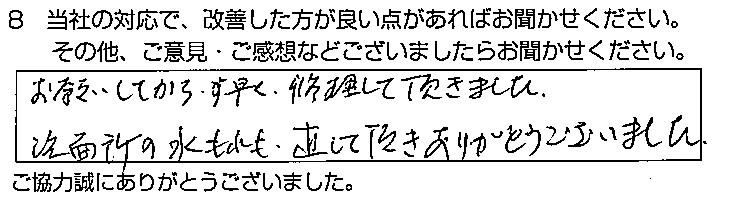 8 当社の対応で、改善した方が良い点があればお聞かせください。
その他、ご意見・ご感想などございましたらお聞かせください。
お願いしてから、す早く、修理して頂きました。
洗面所の水もれも、直して頂きありがとうございました。
ご協力誠にありがとうございました。